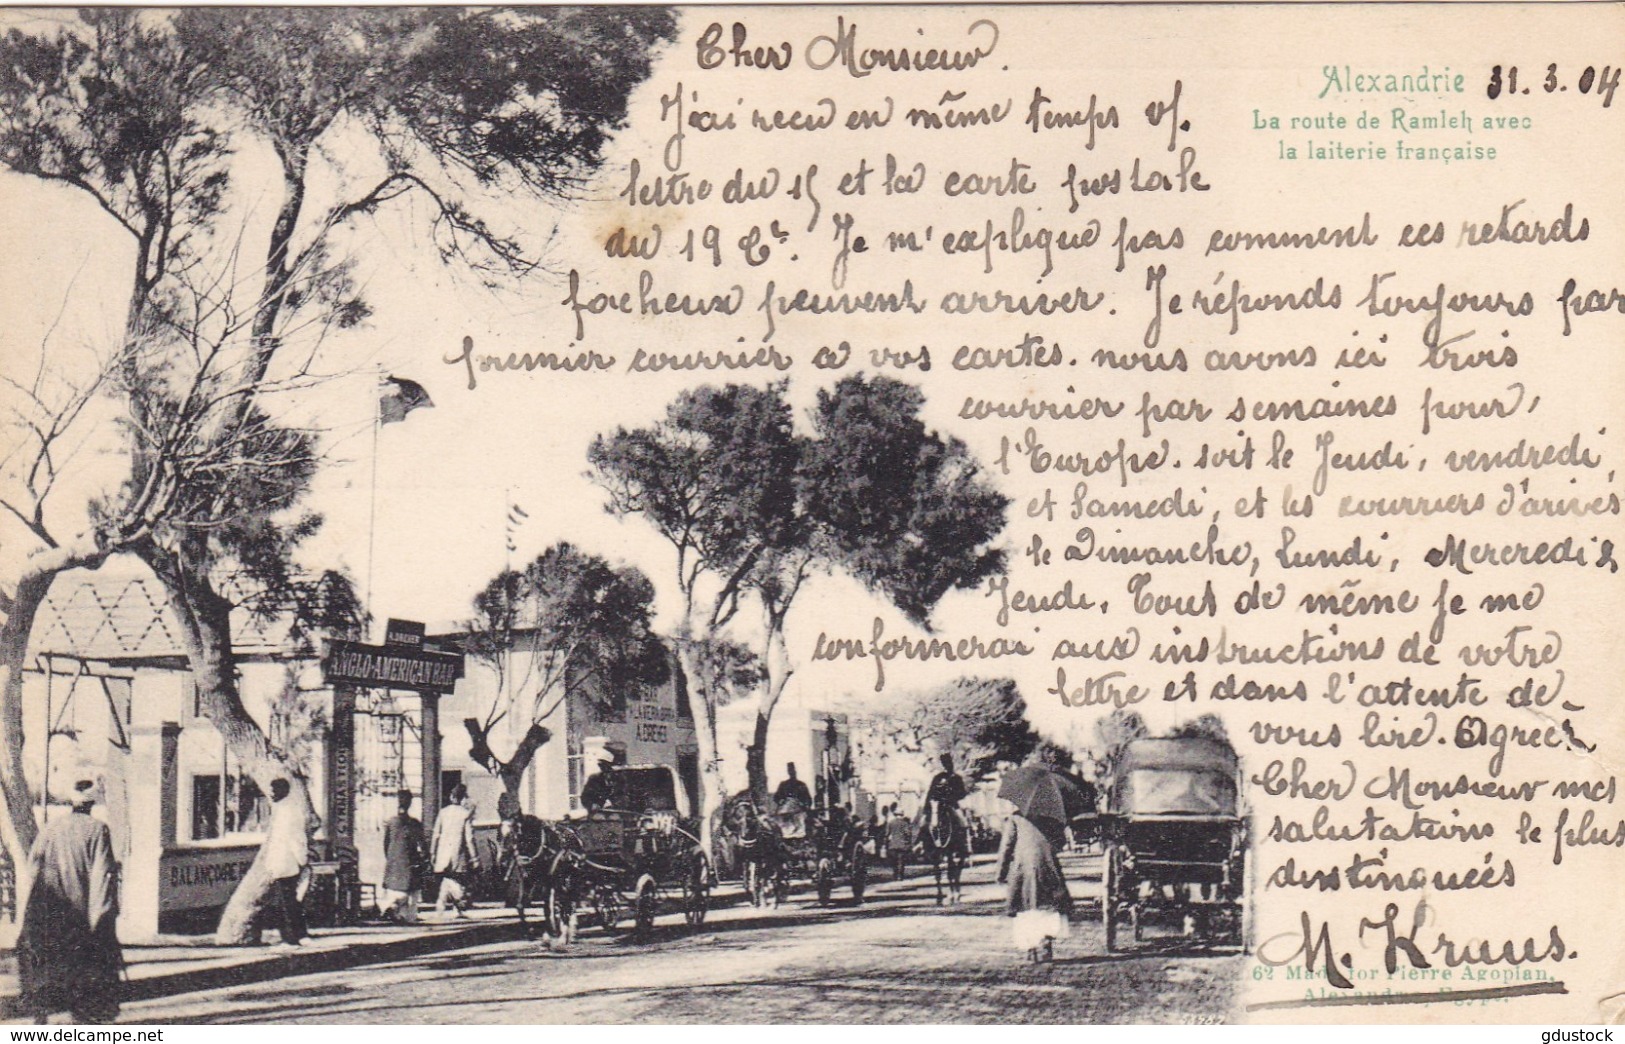 Cher Monsieur.
Alexandrie 31.3.04
La route de Ramleh avec
la laiterie française
J'ai recu en même temps v/.
lettre du 15 et la carte postale
du 19 Ct. Je m'explique pas comment ces retards
facheux peuvent arriver. Je réponds toujours par
premier courrier a vos cartes. nous avons ici trois
courrier par semaines pour,
l'Europe. soit le Jeudi, vendredi,
et Samedi, et les courriers d'arivés
le Dimanche, Lundi, Mercredi &
Jeudi. Tout de même je me
conformerai aux instructions de votre
lettre et dans l'attente de
vous lire. Agreez
Cher Monsieur mes
salutations le plus
destinguées
M. Kraus.
62 Made for Pierre Agopian,
Alexandrie, Egypt.
A. DREHER
ANGLO-AMERICAN BAR
BAR
A. DREHER
BALANÇOIRE
gdustock